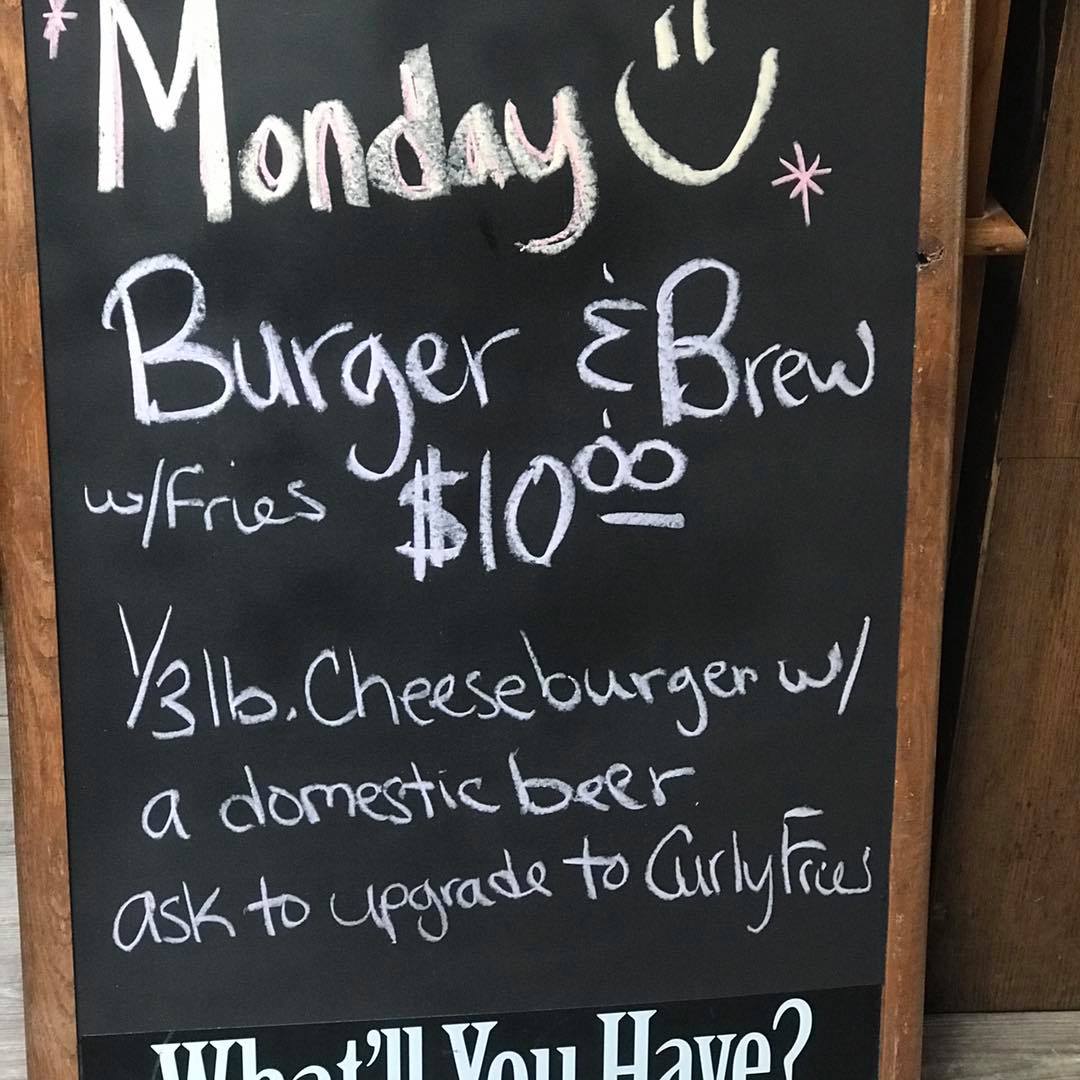 Monday
Burger & Brew
w/Fries $10.00
1/3 lb. Cheeseburger w/
a domestic beer
ask to upgrade to Curly Fries
What'll You Have?